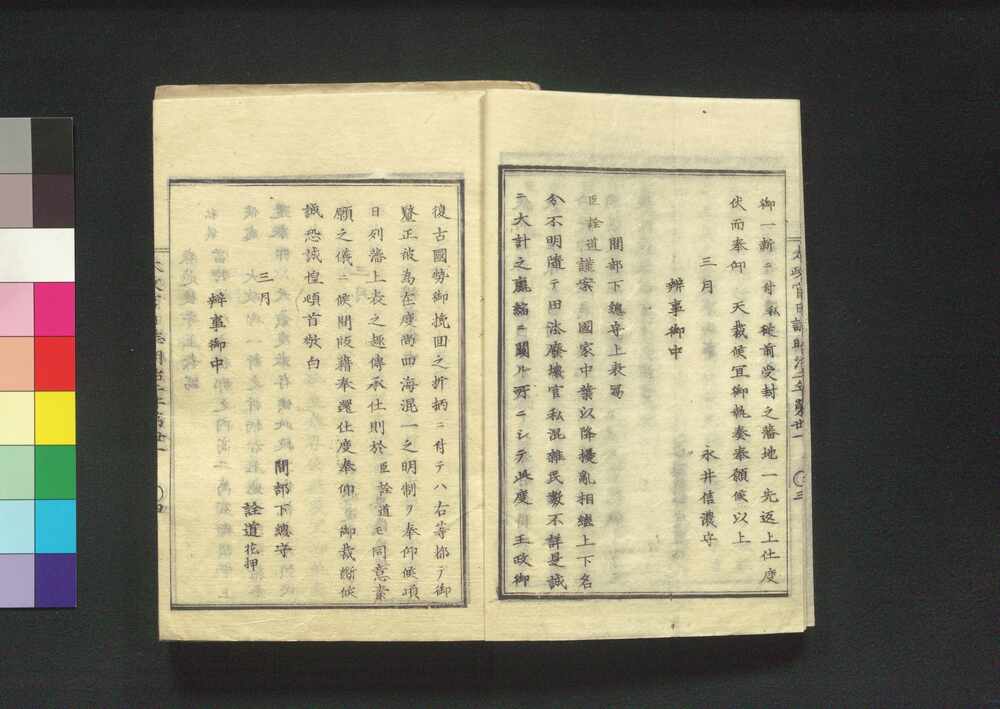 御一新ニ付私従前受封之藩地一先返上仕度
伏而奉仰　天裁候宜御執奏奉願候以上
三月　永井信濃守
辨事御中
間部下總守上表寫
臣詮道謹案　國家中葉以降擾亂相繼上下名
分不明隨テ田法廢壊官私混雜民數不詳是誠
ニ大計之嬴縮ニ關ル所ニシテ此度　王政御
復古國勢御挽回之折柄ニ付テハ右等都テ御
釐正被為在度尚四海混一之明制ヲ奉仰候項
日列藩上表之趣傳承仕則於臣詮道モ同意素
願之儀ニ候間版籍奉還仕度奉仰　御裁斷候
誠恐誠惶頓首敬白
三月　間部下總守
詮道花押
辨事御中